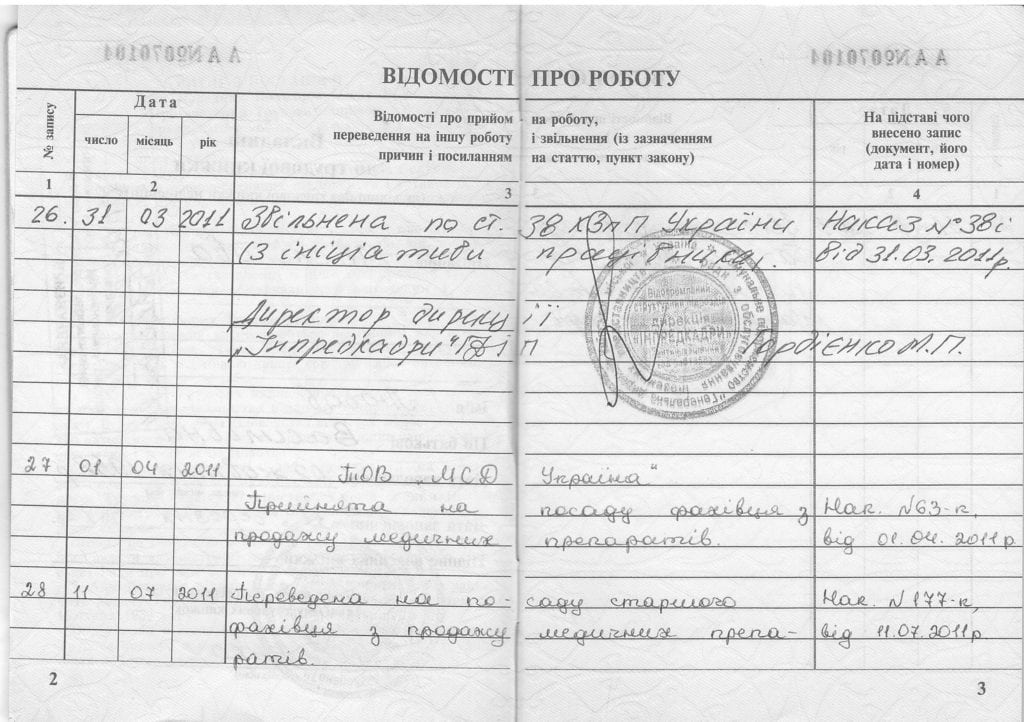 АА №070104 АА №070104
ВІДОМОСТІ ПРО РОБОТУ
№ запису
Дата
число місяць рік
Відомості про прийом на роботу,
переведення на іншу роботу і звільнення (із зазначенням
причин і посиланням на статтю, пункт закону)
На підставі чого
внесено запис
(документ, його
дата і номер)
1 2 3 4
26. 31 03 2011 Звільнена по ст. 38 КЗпП України Наказ №38і
(З ініціативи працівника). від 31.03.2011р.
Директор дирекції
„Інпредкадри" ГДІП Гордієнко М.П.
дирекція
"ІНПРЕДКАДРИ"
27 01 04 2011 ТОВ „МСД Україна"
Прийнята на посаду фахівця з Нак. №63-к,
продажу медичних препаратів. від 01.04.2011р
28 11 07 2011 Переведена на по- саду старшого Нак. №177-к,
фахівця з продажу медичних препа- від 11.07.2011р.
ратів.
2 3